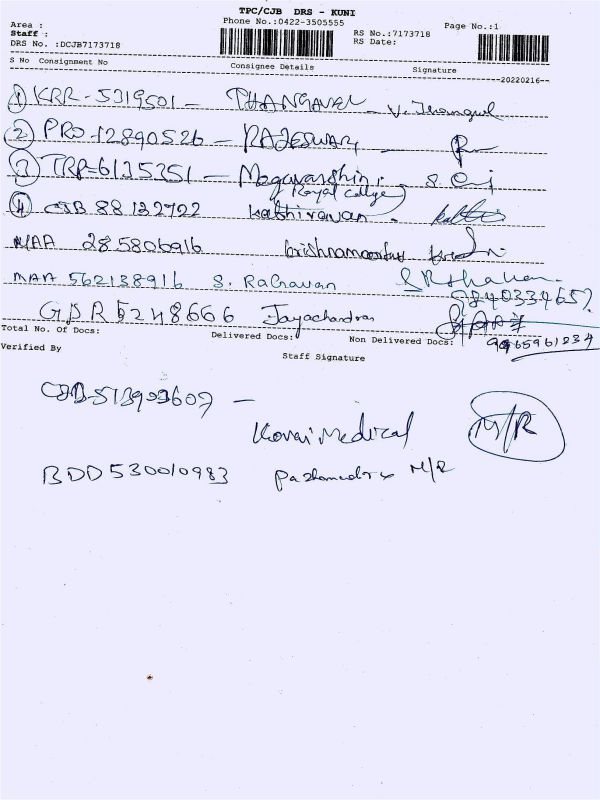 TPC/CJB DRS - KUNI
Area : Phone No.:0422-3505555 Page No.:1
Staff : RS No.:7173718
DRS No. :DCJB7173718 RS Date:
S No Consignment No Consignee Details Signature
--20220216--
1 KRR - 5319501 - THANGAVEL - V. Thangavel
2 PRO - 12890526 - RAJESWARI -
3 TRP - 6135351 - Megavarshini
(Royal college)
4 CJB 88132722 Kathiravan -
MAA 285806916 krishnamoorthy
MAA 562138916 S. Raghavan
9840334657
GPR 5248666 Jayachandran
9965961234
Total No. Of Docs: Delivered Docs: Non Delivered Docs:
Verified By Staff Signature
CJB-513909609 -
Kovai Medical M/R
BDD 530010983 M/R